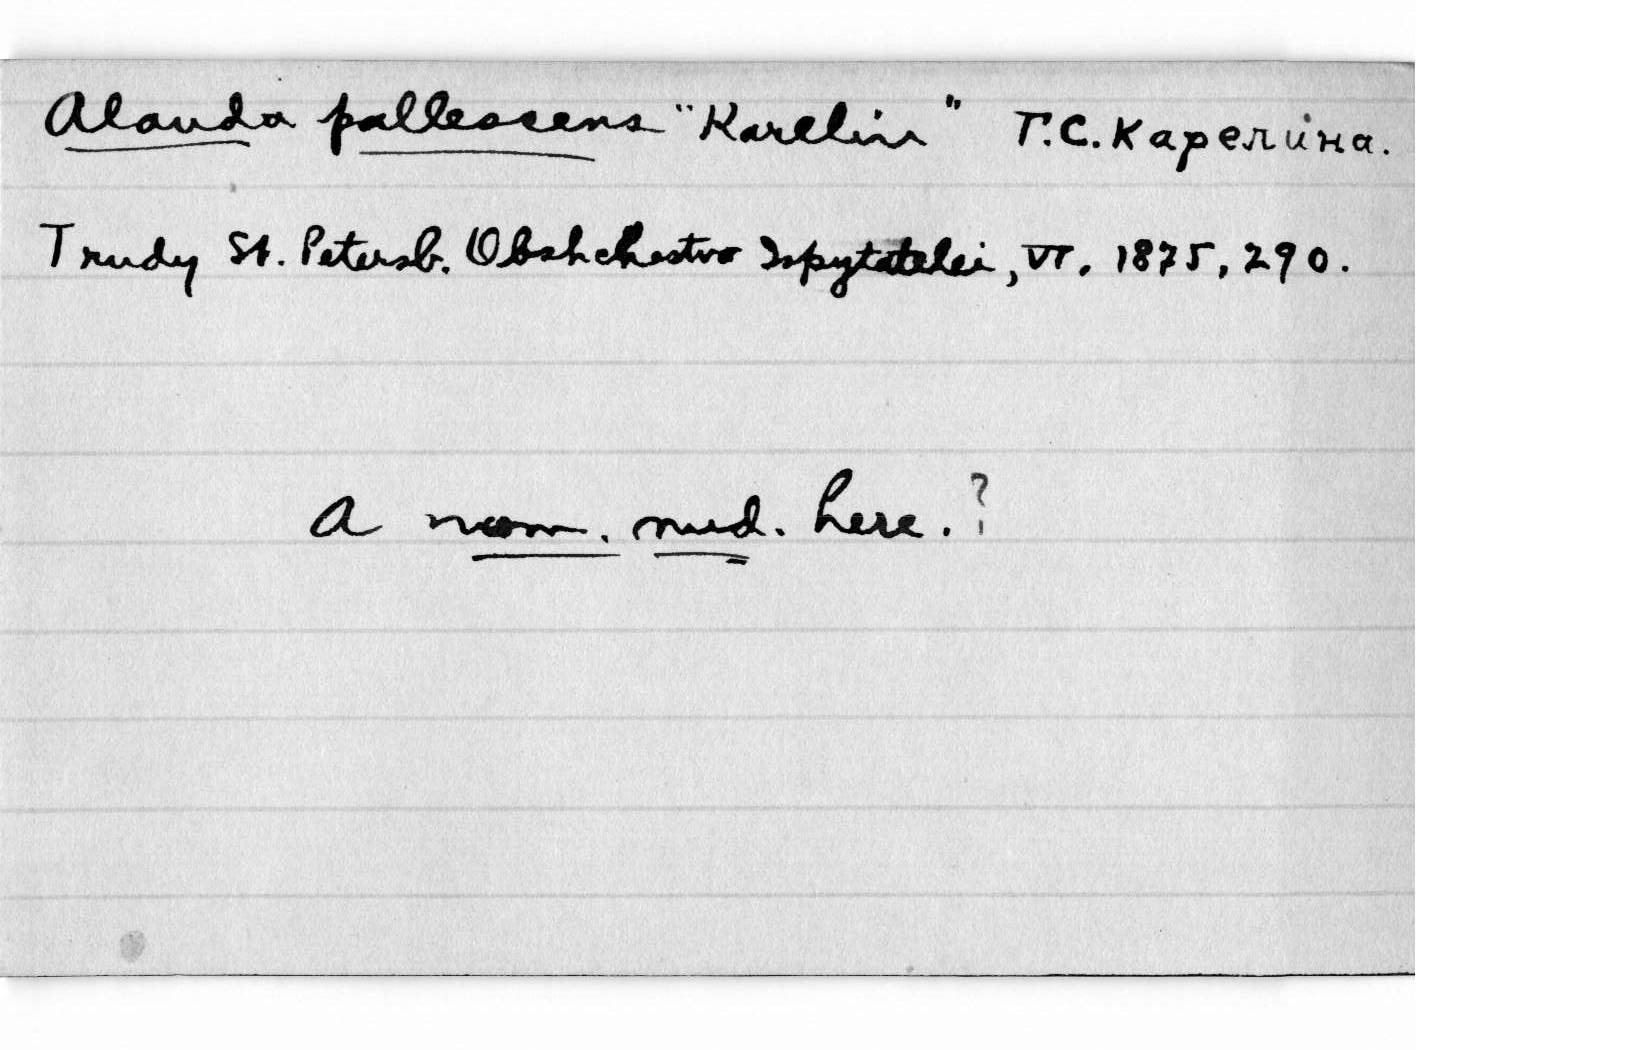 Alauda pallescens "Karelin" Г.С. Карелина.
Trudy St. Petersb. Obshchestvo Ispytatelei, VI, 1875, 290.
A nom. nud. here. ?